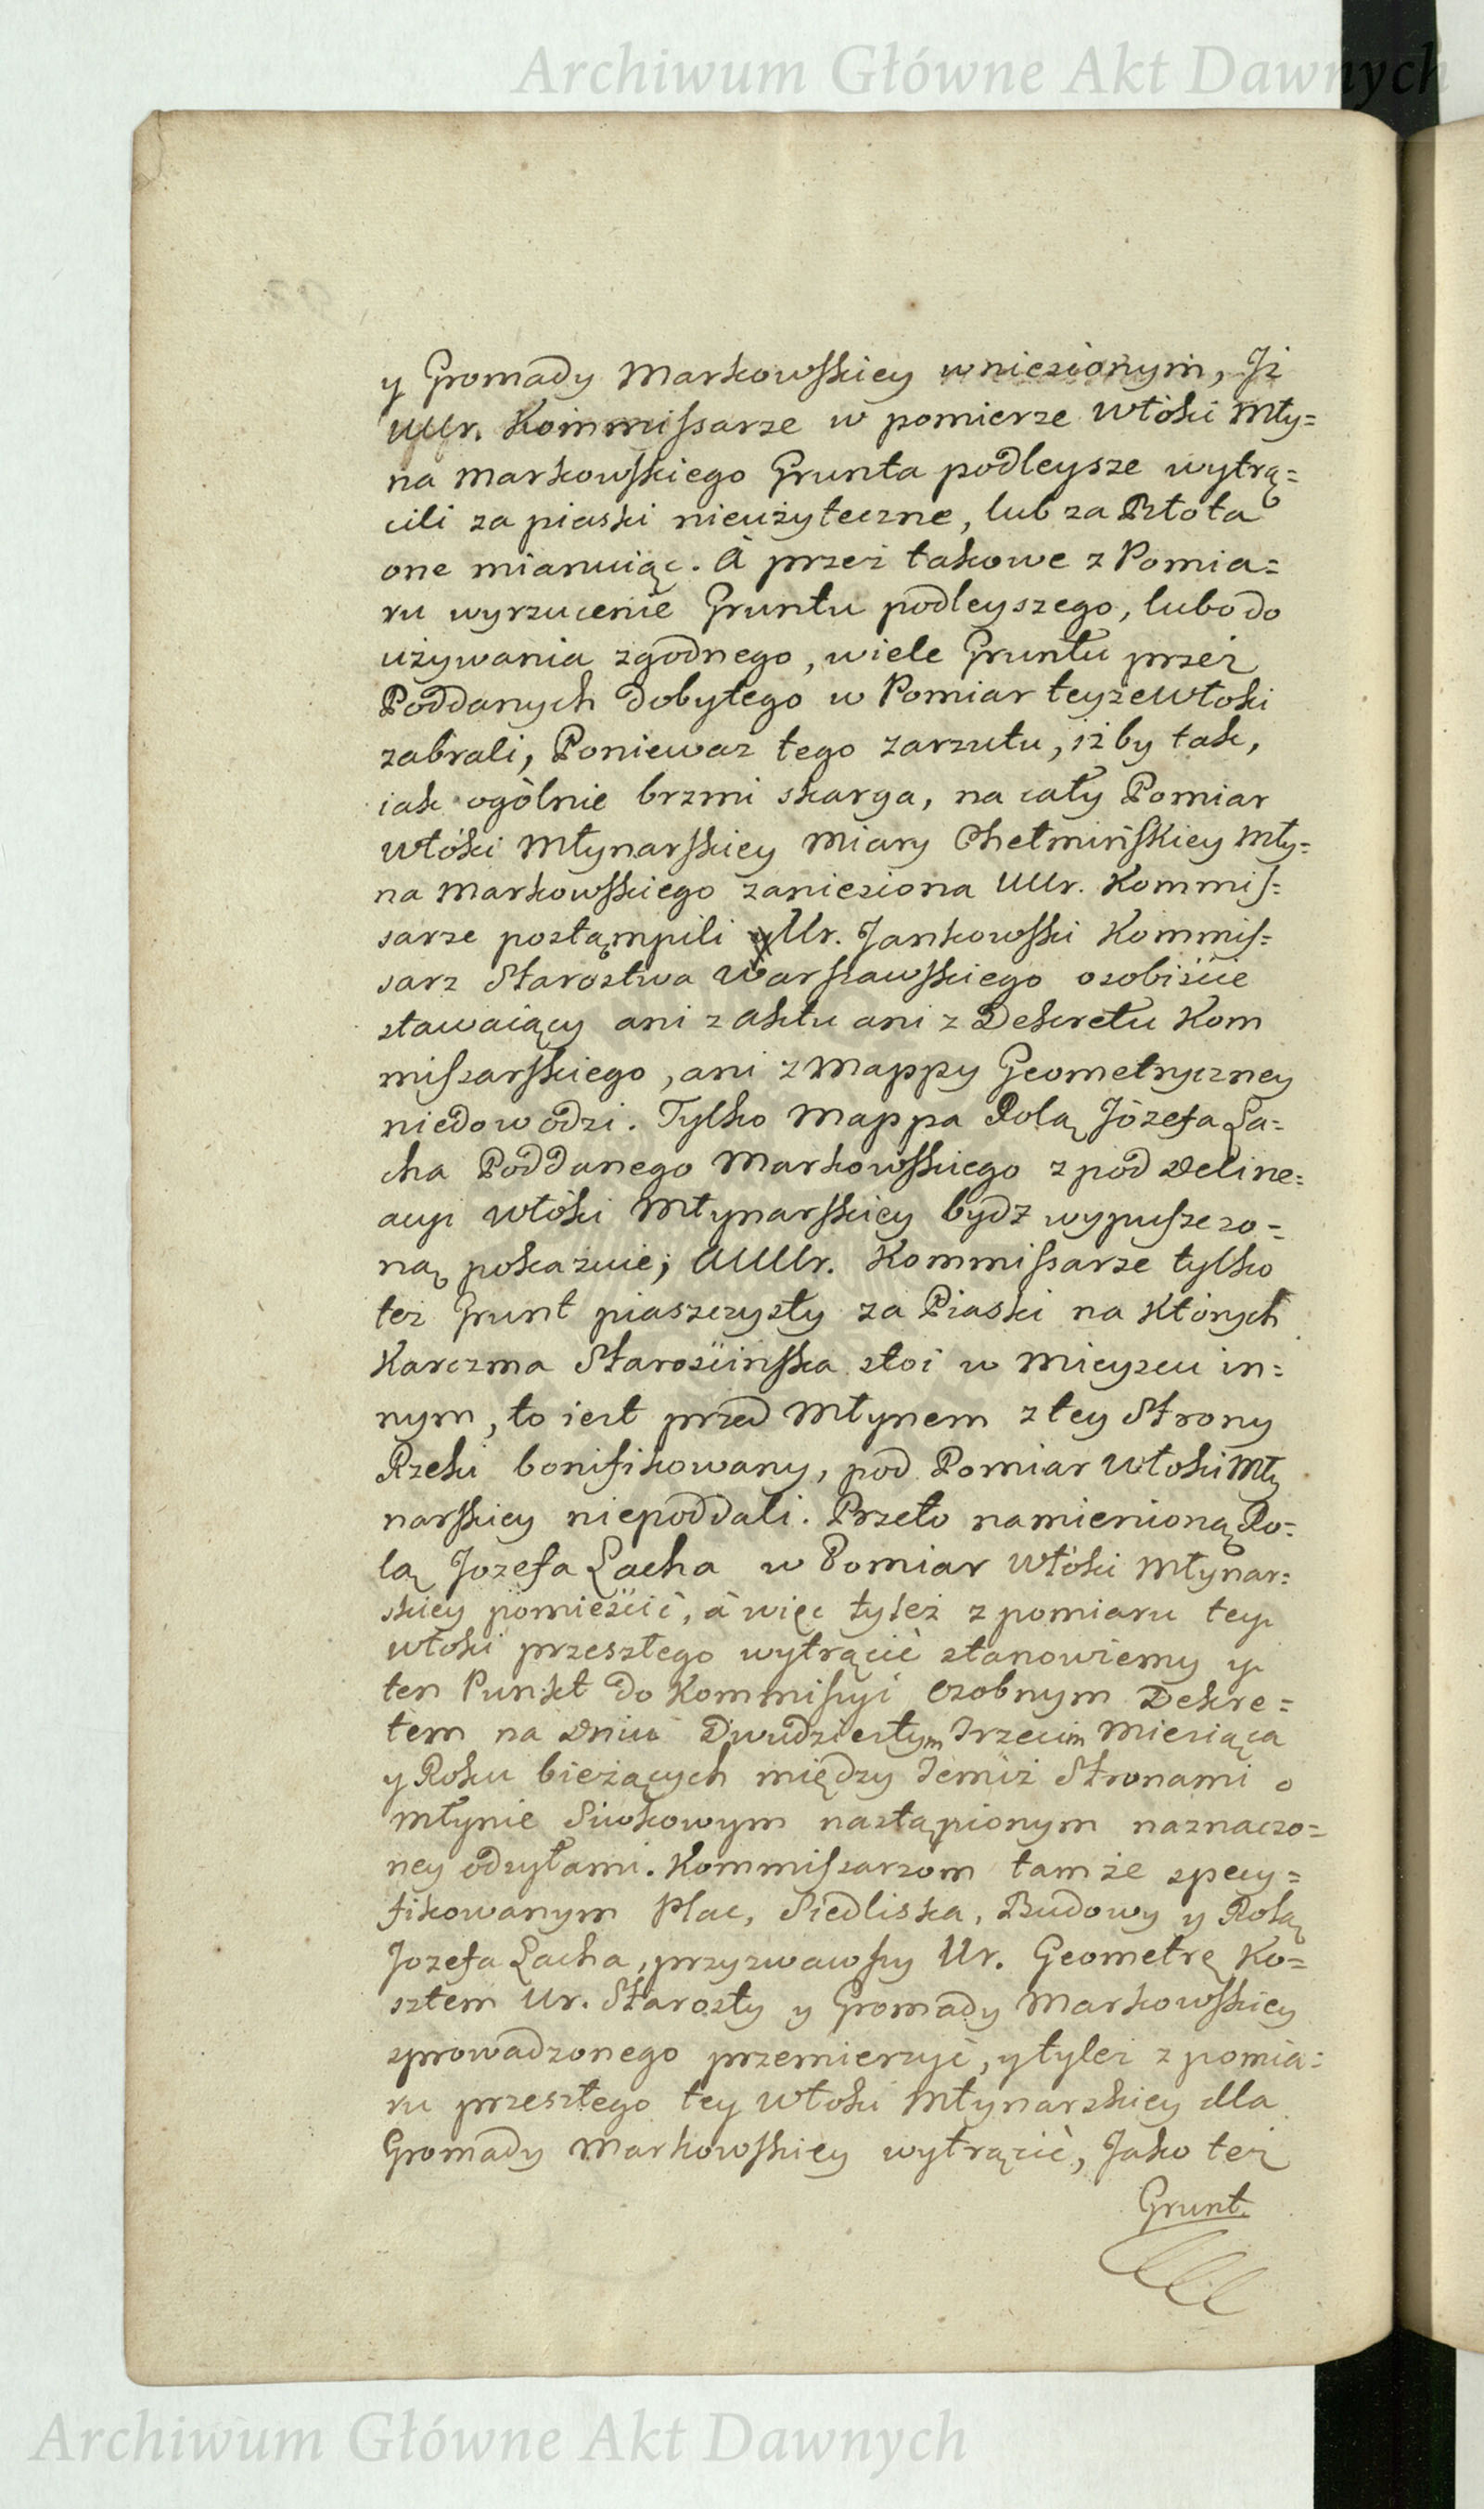 Archiwum Główne Akt Dawnych
y Gromady Markowskiey wniesionym, Jż
UUr. Kommissarze w pomierze Włóki Mły=
na Markowskiego Grunta podleysze wytrą=
cili za piaski nieużyteczne, lub za Błota
one mianuiąc. A przez takowe z Pomia=
ru wyrzucenie Gruntu podleyszego, lubo do
używania zgodnego, wiele Gruntu przez
Poddanych dobytego w Pomiar teyże Włoki
zabrali, Ponieważ tego zarzutu, iżby tak,
iak ogólnie brzmi skarga, na cały Pomiar
Włóki Młynarskiey Miary Chełmińskiey Mły=
na Markowskiego zaniesiona UUr. Kommis=
sarze postąmpili Ur. Jankowski Kommis=
sarz Starostwa Warszawskiego osobiście
stawaiący ani z Aktu ani z Dekretu Kom
missarskiego, ani z Mappy Geometryczney
niedowodzi. Tylko Mappa Rolą Józefa La=
cha Poddanego Markowskiego z pod Deline=
acyi Włóki Młynarskiey bydź wypuszczo=
ną pokazuie; AUUr. Kommissarze tylko
też Grunt piaszczysty za Piaski na Których
Karczma Starościńska stoi w Mieyscu in=
nym, to iest przed Młynem z tey Strony
Rzeki bonifikowany, pod Pomiar Włoki Mły
narskiey niepoddali. Przeto namienioną Ro=
lą Jozefa Lacha w Pomiar Włóki Młynar=
skiey pomieścić, à więc tyleż z pomiaru tey
włoki przeszłego wytrącić stanowiemy y
ten Punkt do Kommissyi osobnym Dekre=
tem na Dniu Dwudziestym Trzecim Miesiąca
y Roku bieżących między Temiż Stronami o
Młynie Siwkowym nastąpionym naznaczo=
ney odsyłami. Kommissarzom tamże specy=
fikowanym Plac, Siedliska, Budowy y Rolą
Jozefa Lacha, przyzwawszy Ur. Geometrę Ko=
sztem Ur. Starosty y Gromady Markowskiey
sprowadzonego przemierzyć, y tyleż z pomia=
ru przeszłego tey Włoki Młynarskiey dla
Gromady Markowskiey wytrącić, Jako też
Grunt.
Archiwum Główne Akt Dawnych